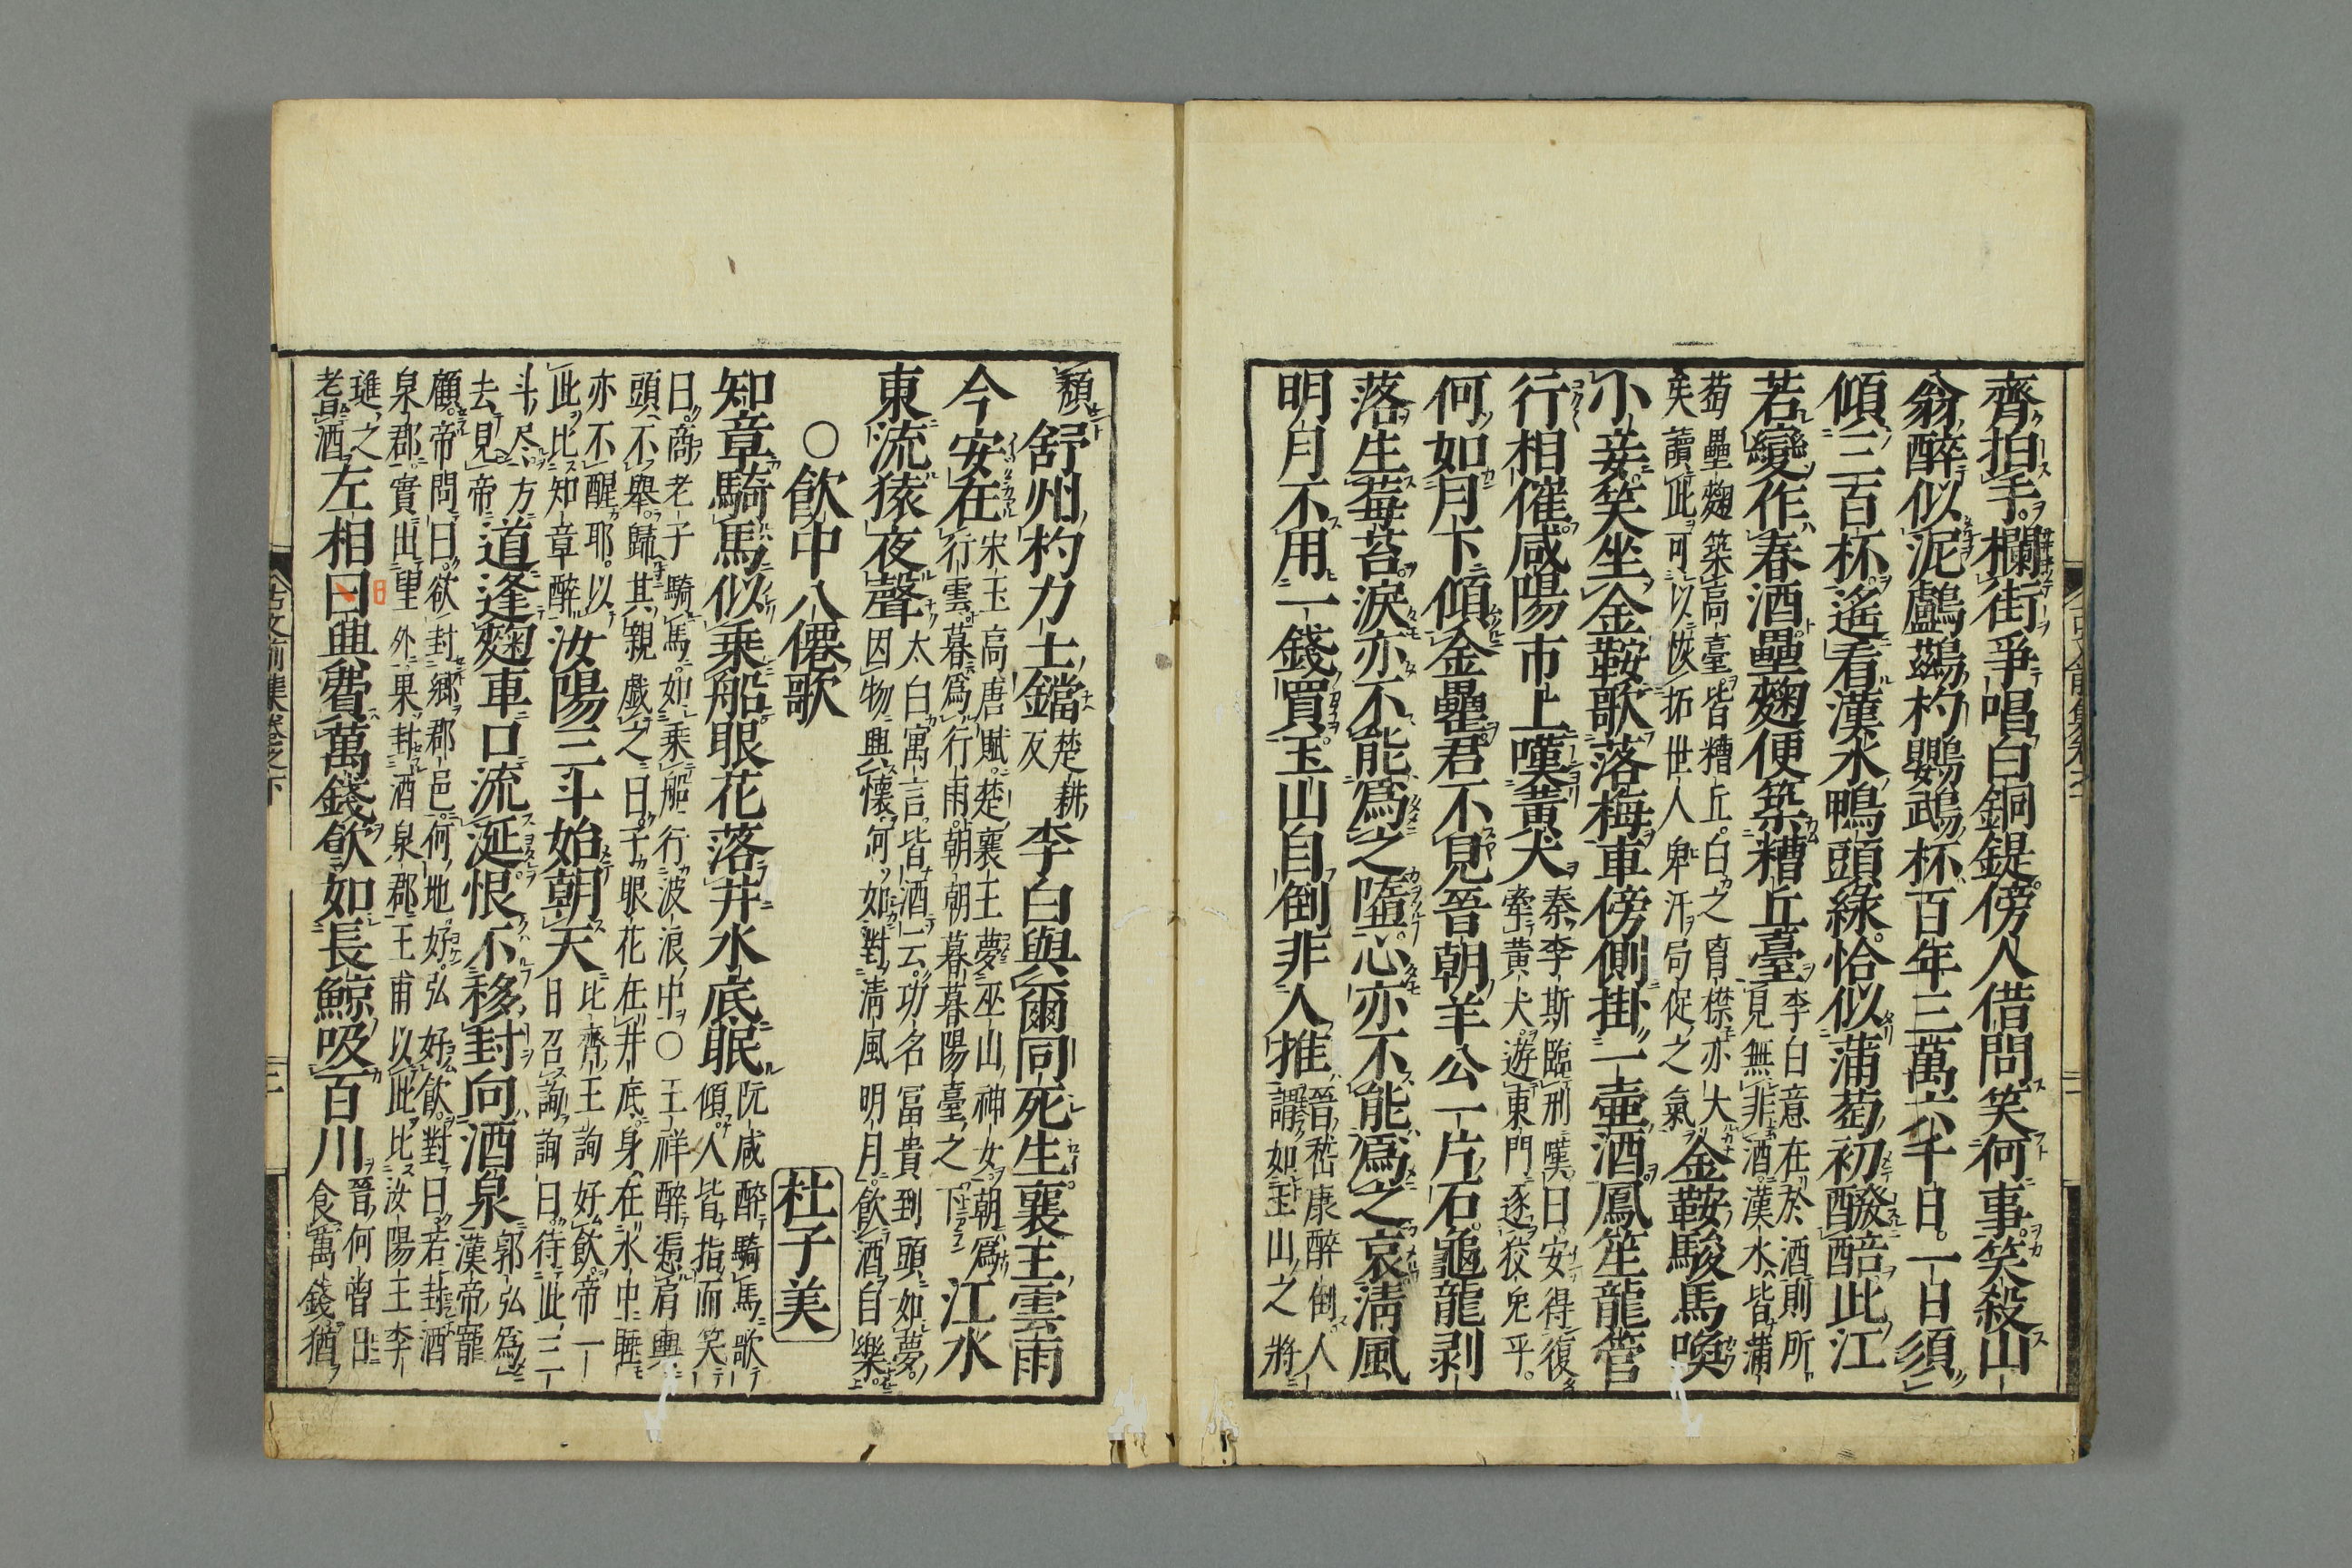 齊拍手攔街爭唱白銅鍉傍人借問笑何事笑殺山
翁醉似泥鸕鷀杓鸚鵡杯百年三萬六千日一日須
傾三百杯遙看漢水鴨頭綠恰似蒲萄初醱醅此江
若變作春酒壘麴便築糟丘臺李白意在於酒則所
見無非酒漢水皆蒲
萄壘麴築高臺皆糟丘白之胷襟亦大
矣讀此可以恢拓世人卑汗局促之氣金鞍駿馬喚
小妾笑坐金鞍歌落梅車傍側掛一壷酒鳳笙龍管
行相催咸陽市上嘆黃犬秦李斯臨刑嘆曰安得復
牽黃犬遊東門逐狡兎乎
何如月下傾金罍君不見晉朝羊公一片石龜龍剥
落生莓苔淚亦不能爲之墮心亦不能爲之哀淸風
明月不用一錢買玉山自倒非人推晉嵆康醉倒人
謂如玉山之將
頹舒州杓力士鐺楚耕
反李白與爾同死生襄王雲雨
今安在宋玉高唐賦楚襄王夢巫山神女朝爲
行雲暮爲行雨朝朝暮暮陽臺之下江水
東流猿夜聲太白寓言皆酒云功名冨貴到頭如夢
因物興懷何如對淸風明月飮酒自樂
〇飮中八僊歌 杜子美
知章騎馬似乗船眼花落井水底眠阮咸醉騎馬歌
傾人皆指而笑
曰商老子騎馬如乗船行波浪中〇王祥醉憑肩輿
頭不舉歸其親戲之曰子眼花在井底身在水中睡
亦不醒耶以
此比知章醉汝陽三斗始朝天比齊王詢好飮帝一
日召詢詢曰待此三
斗尽方
去見帝道逢麴車口流涎恨不移封向酒泉郭弘爲
漢帝寵
顧帝問曰欲封郷郡邑何地好弘好飮對曰若封酒
泉郡實出望外果封酒泉郡王甫以此比汝陽王李
璡之
耆酒左相日興費萬錢飮如長鯨吸百川晉何曾日
食萬錢猶
日
古文前集卷之下